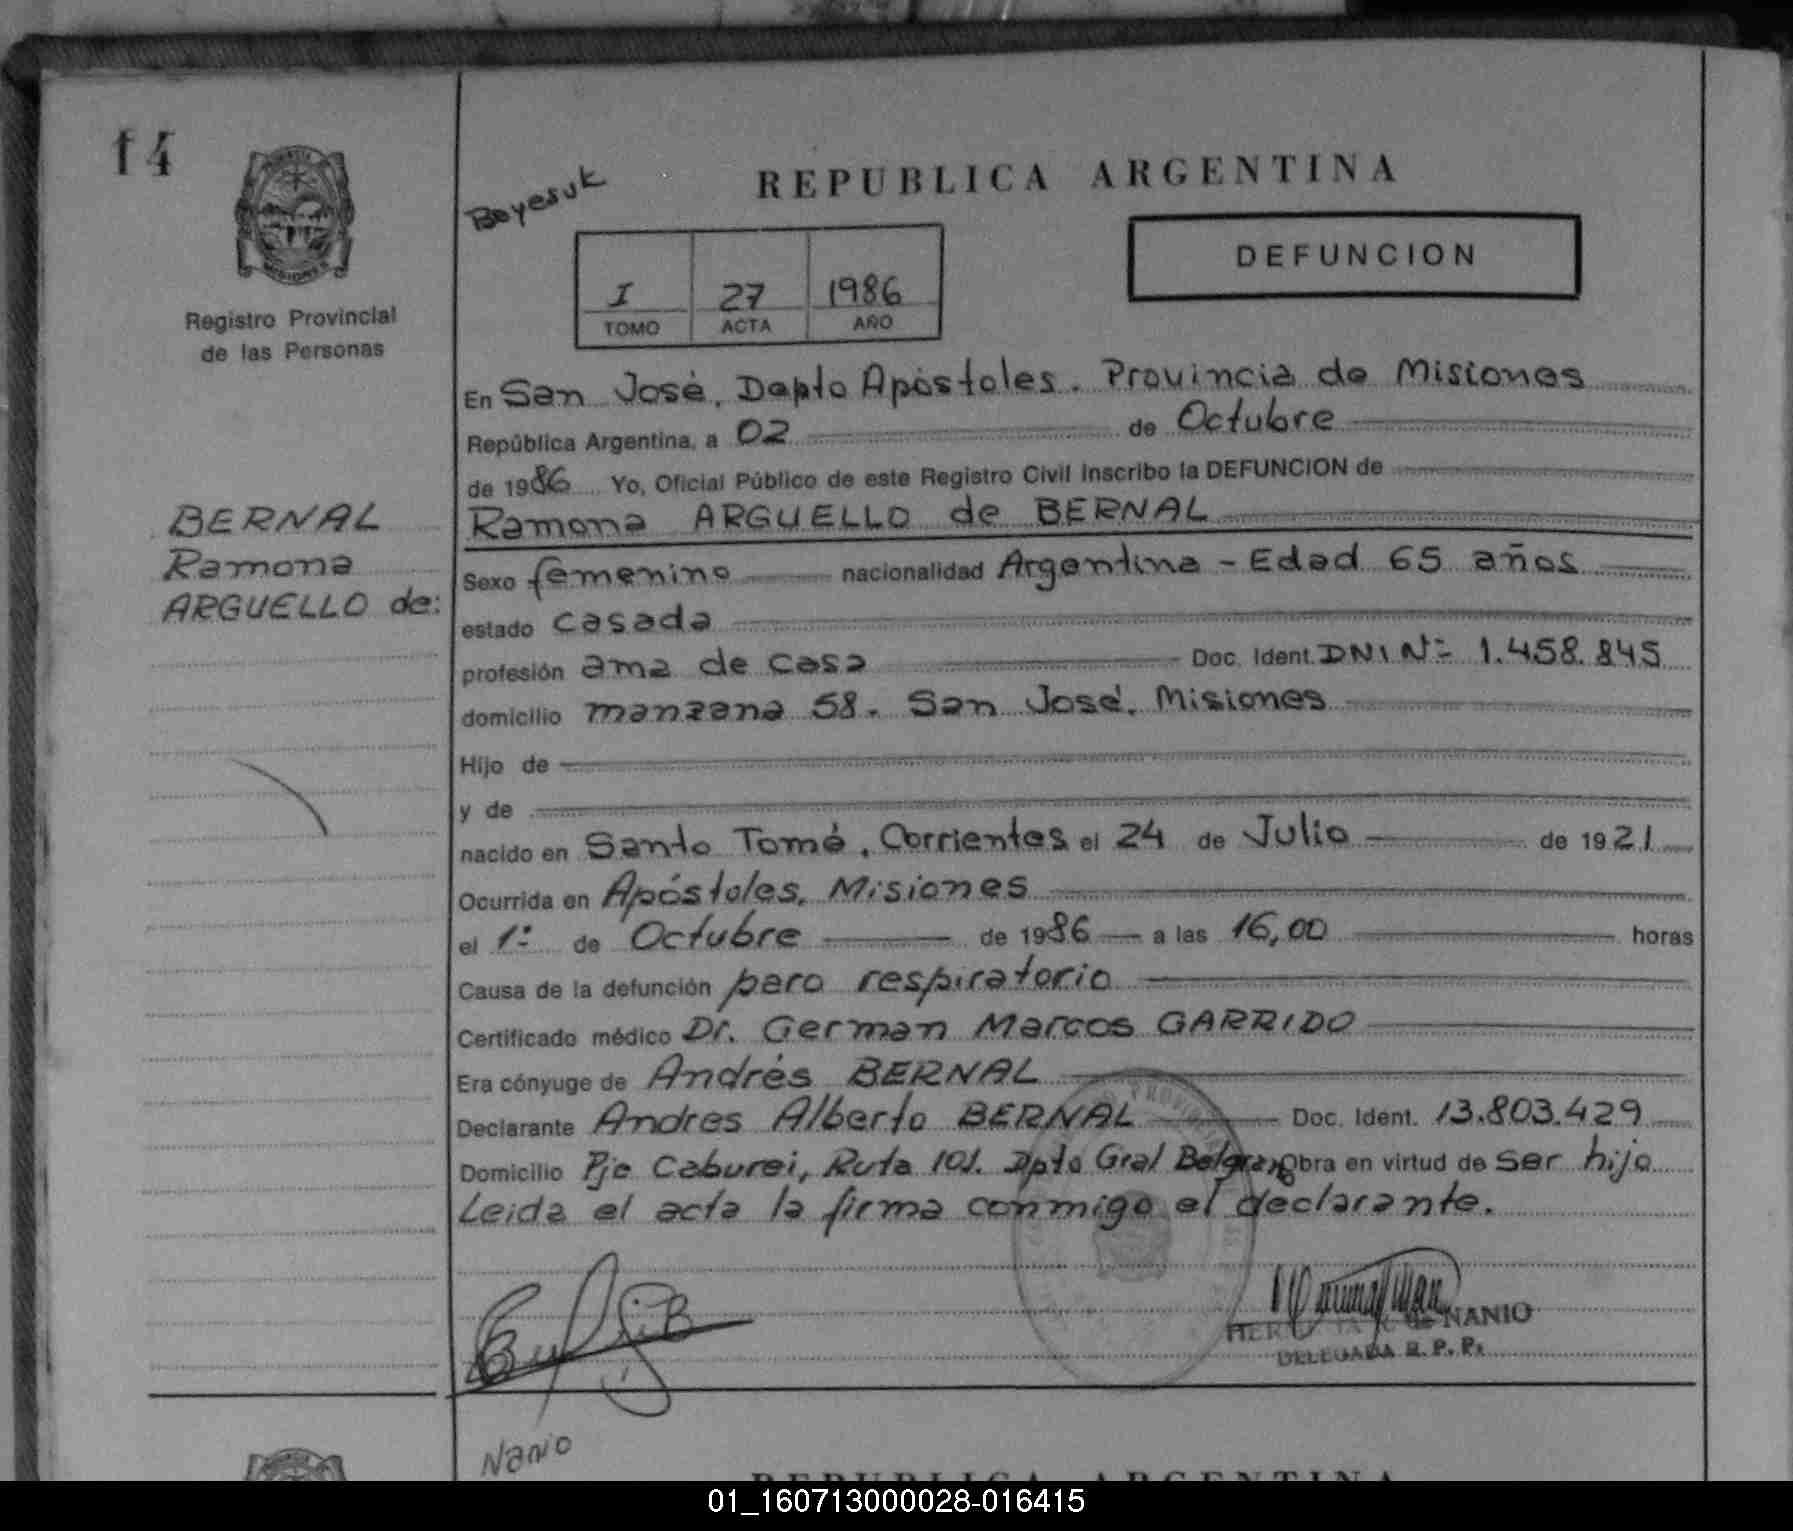 f4
Registro Provincial
de las Personas
BERNAL
Ramona
ARGUELLO de:
Boyesuk
REPUBLICA ARGENTINA
DEFUNCION
I 27 1986
TOMO ACTA AÑO
En San José, Depto Apóstoles. Provincia de Misiones
República Argentina, a 02 de Octubre
de 1986 Yo, Oficial Público de este Registro Civil inscribo la DEFUNCION de
Ramona ARGUELLO de BERNAL
Sexo femenino nacionalidad Argentina - Edad 65 años
estado casada
profesión ama de casa Doc. Ident. DNI Nº 1.458.845
domicilio manzana 58. San José, Misiones
Hijo de
y de
nacido en Santo Tomé, Corrientes el 24 de Julio de 1921
Ocurrida en Apóstoles, Misiones
el 1º de Octubre de 1986 a las 16,00 horas
Causa de la defunción paro respiratorio
Certificado médico Dr. German Marcos GARRIDO
Era cónyuge de Andrés BERNAL
Declarante Andres Alberto BERNAL Doc. Ident. 13.803.429
Domicilio Pje Caburei, Ruta 101. Dpto Gral Belgrano Obra en virtud de ser hijo
Leida el acta la firma conmigo el declarante.
de NANIO
DELEGADA R. P. P.
Nanio
REPUBLICA ARGENTINA
01_160713000028-016415